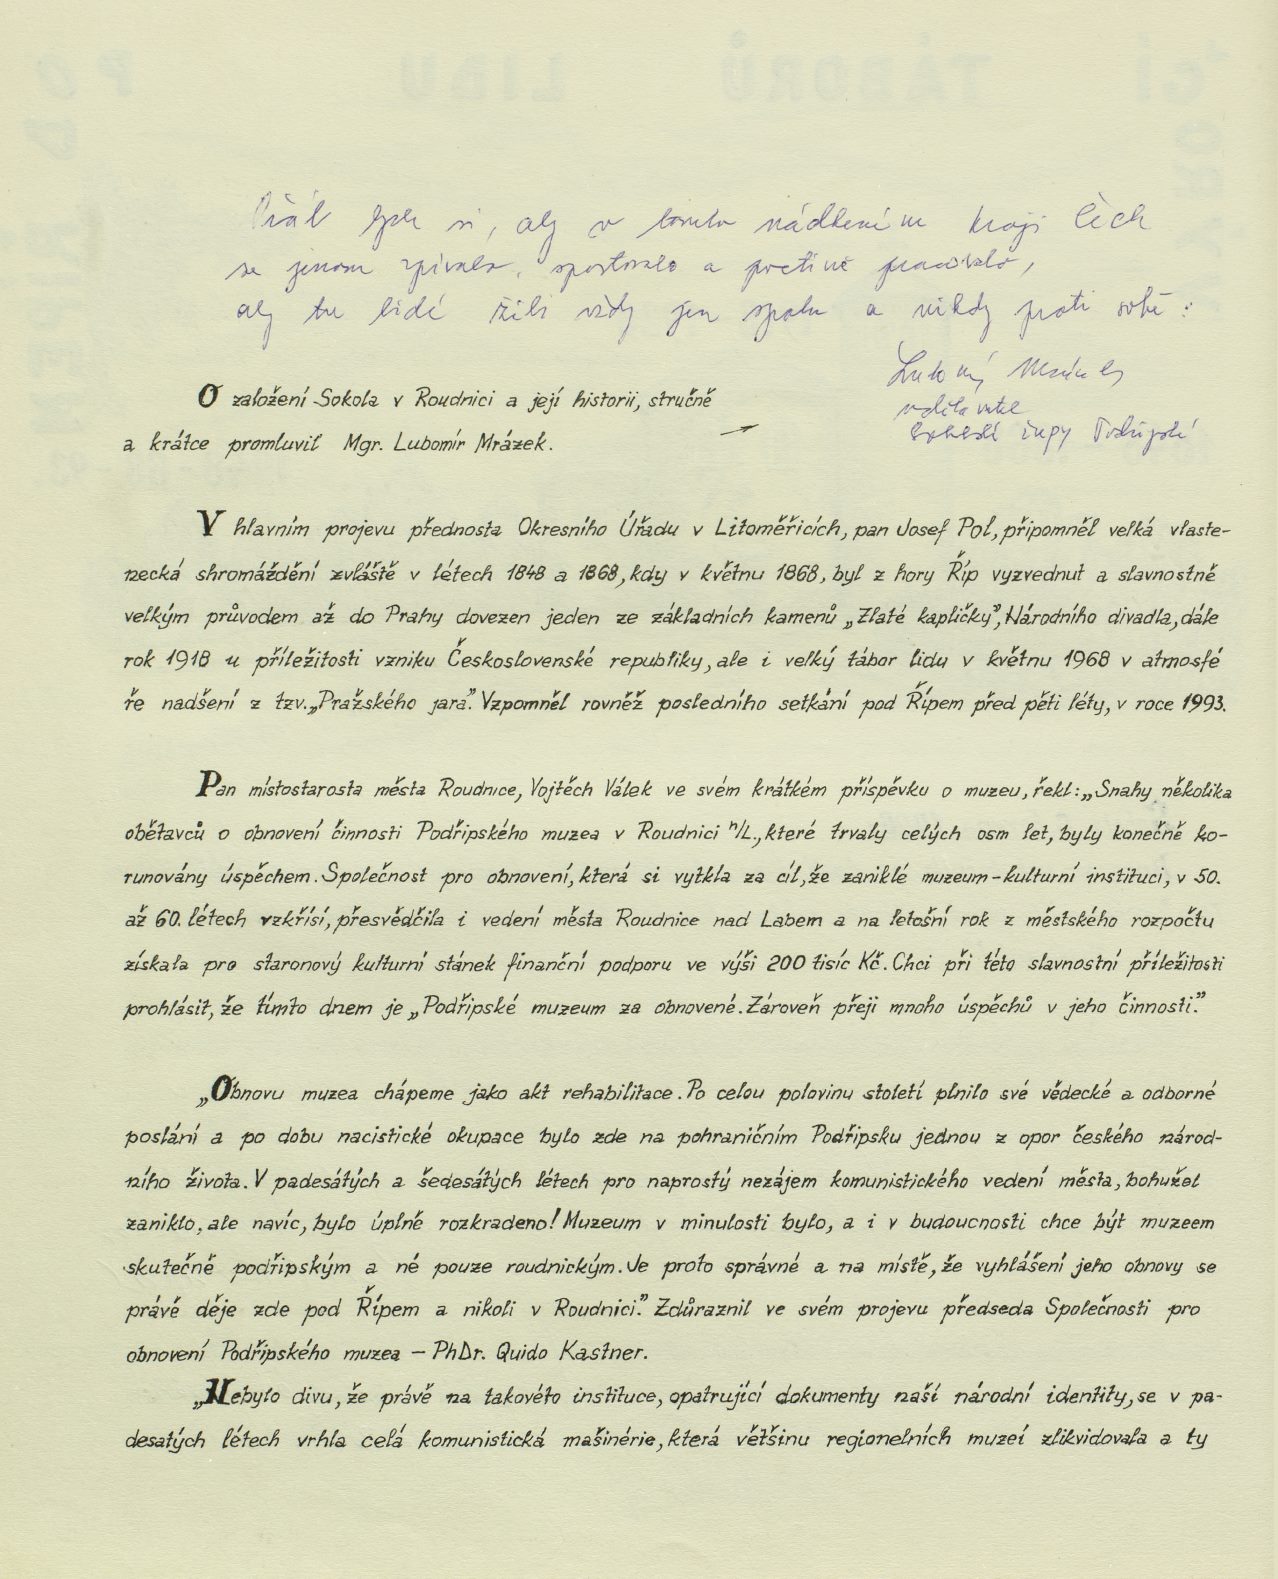 Přál bych si, aby v tomto nádherném kraji Čech
se jenom zpívalo, sportovalo a poctivě pracovalo,
aby tu lidé žili vždy jen spolu a nikdy proti sobě.
Lubomír Mrázek
vzdělavatel
sokolské župy Podřipské
O založení Sokola v Roudnici a její historii, stručně
a krátce promluvil Mgr. Lubomír Mrázek.
V hlavním projevu přednosta Okresního Úřadu v Litoměřicích, pan Josef Pol, připomněl velká vlaste-
necká shromáždění zvláště v létech 1848 a 1868, kdy v květnu 1868, byl z hory Říp vyzvednut a slavnostně
velkým průvodem až do Prahy dovezen jeden ze základních kamenů „Zlaté kapličky”, Národního divadla, dále
rok 1918 u příležitosti vzniku Československé republiky, ale i velký tábor lidu v květnu 1968 v atmosfé
ře nadšení z tzv. „Pražského jara”. Vzpomněl rovněž posledního setkání pod Řípem před pěti léty, v roce 1993.
Pan místostarosta města Roudnice, Vojtěch Válek ve svém krátkém příspěvku o muzeu, řekl: „Snahy několika
obětavců o obnovení činnosti Podřipského muzea v Roudnici n/L., které trvaly celých osm let, byly konečně ko-
runovány úspěchem. Společnost pro obnovení, která si vytkla za cíl, že zaniklé muzeum-kulturní instituci, v 50.
až 60. létech vzkřísí, přesvědčila i vedení města Roudnice nad Labem a na letošní rok z městského rozpočtu
získala pro staronový kulturní stánek finanční podporu ve výši 200 tisíc Kč. Chci při této slavnostní příležitosti
prohlásit, že tímto dnem je „Podřipské muzeum za obnovené. Zároveň přeji mnoho úspěchů v jeho činnosti.”
„Obnovu muzea chápeme jako akt rehabilitace. Po celou polovinu století plnilo své vědecké a odborné
poslání a po dobu nacistické okupace bylo zde na pohraničním Podřipsku jednou z opor českého národ-
ního života. V padesátých a šedesátých létech pro naprostý nezájem komunistického vedení města, bohužel
zaniklo, ale navíc, bylo úplně rozkradeno! Muzeum v minulosti bylo, a i v budoucnosti chce být muzeem
skutečně podřipským a né pouze roudnickým. Je proto správné a na místě, že vyhlášení jeho obnovy se
právě děje zde pod Řípem a nikoli v Roudnici.” Zdůraznil ve svém projevu předseda Společnosti pro
obnovení Podřipského muzea – PhDr. Quido Kastner.
„Nebylo divu, že právě na takovéto instituce, opatrující dokumenty naší národní identity, se v pa-
desatých létech vrhla celá komunistická mašinérie, která většinu regionelních muzeí zlikvidovala a ty